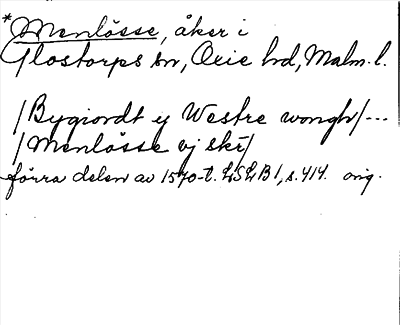 *Menlösse, åker i
Glostorps sn, Oxie hd, Malm. l.
/Bygiordt ej Westre wongh/---
/Menlösse vj skr/
förra delen av 1570-t. LSLB 1, s. 414. orig.